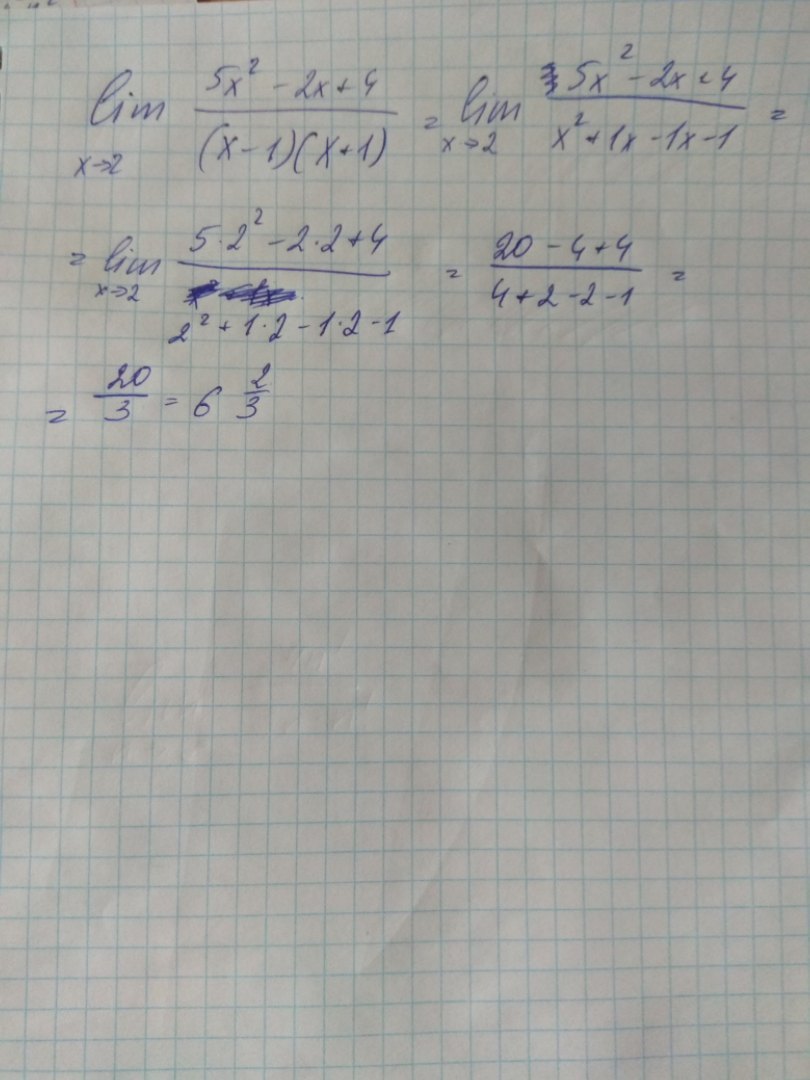 lim x→2 (5x² - 2x + 4)/((x-1)(x+1)) = lim x→2 (5x² - 2x + 4)/(x² + 1x - 1x - 1) =
= lim x→2 (5·2² - 2·2 + 4)/(2² + 1·2 - 1·2 - 1) = (20 - 4 + 4)/(4 + 2 - 2 - 1) =
= 20/3 = 6 2/3